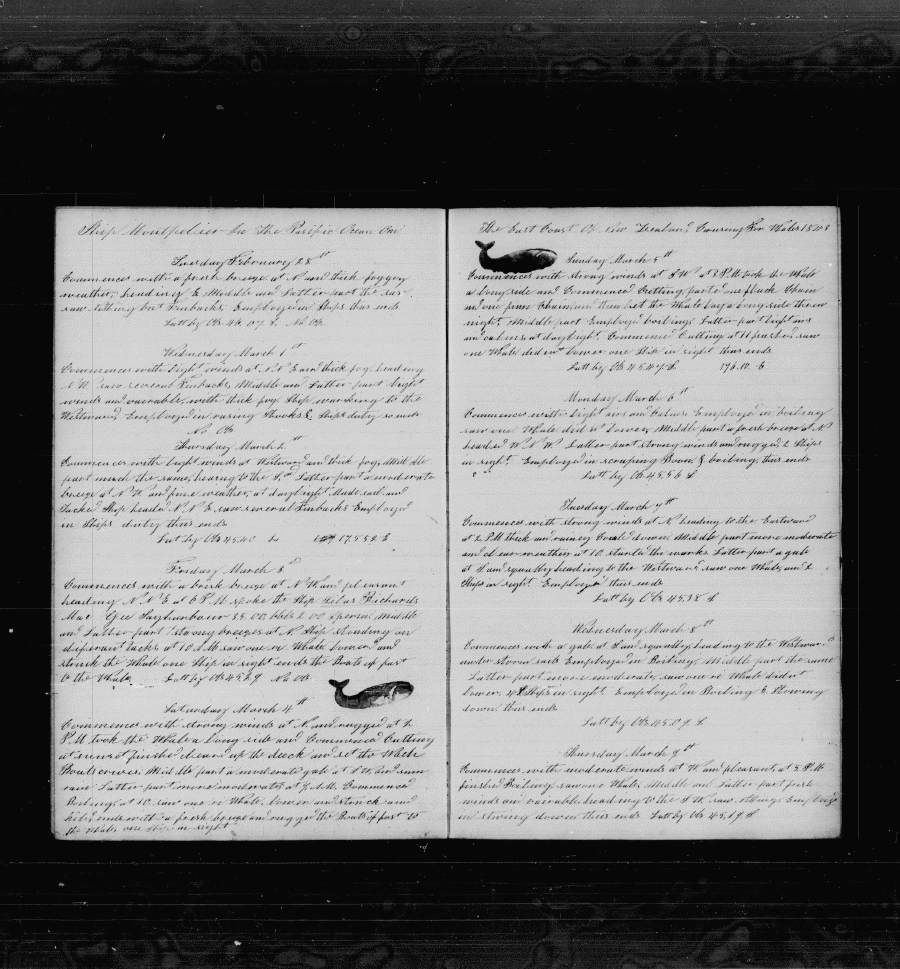 Ship Montpelier In The Pacific Ocean On
Tuesday February 28th
Commences with a fresh breeze at N and thick foggy
weather, heading E Middle and Latter part the same
saw nothing but Finbacks, Employed in Ships
Latt by Ob 46,07 S. No Ob
Wednesday March 1st
Commences with light winds at N.N.E and thick fog. heading
N.W. saw several Finbacks, Middle and Latter part light
winds and vareable, with thick fog Ship working to the
Westward, Employed in & Ships duty so ends
No Ob
Thursday March 2d
Commences with light winds at Westward and thick fog, Middle
part much the same, heading to the Latter part a moderate
breeze at N W and fine weather, at daylight Made sail and
Tacked Ship headed N.N.E saw several Finbacks Employed
in Ships duty thus ends
Latt by Ob 45,40 175,52 E
Friday March 3d
Commences with a brisk breeze at N.W and pleasant
heading N.N.E at 6 P.M spoke the Ship Silas Richards
Mac Gee Sagharbour 200 sperm Middle
and Latter part Strong breezes at N. Ship standing on
diferant tacks at 10 A.M saw one ri Whale Lowerd and
struck the Whale one Ship in sight ends the Boats of fast
to the Whale Latt by Ob 45,29 No Ob
Saturday March 4th
Commences with strong winds at N. and rugged at 2
P.M took the Whale a long side and Commenced Cutting
at sunset finished cleard up the deck and set the Watch
Boats crews, Middle part a moderate gale at S W. and some
rain Latter part more moderate at 7 A.M. Commenced
Boiling, at 10 saw one ri Whale, lowerd and struck and
kild, ends with a fresh breeze and rugged the Boats of fast to
the Whale one Ship in sight
The East Coast Of New Zealand, Cruising For Whales 1848
Sunday March 5th
Commences with strong winds at S W at 3 P.M took the Whale
a long side and Commenced Cutting, parted one fluck Chain
and one finn Chain, and then let the Whale lay a long side thrue
night. Middle part Employd boiling Latter part light airs
and calms at daylight Commenced Cutting at 11 finished, saw
one Whale did not lower one Ship in sight thus ends
Latt by Ob 45,47 S 176,10 E
Monday March 6th
Commences with Light airs and Calms Employed in boiling
saw one Whale did not Lower, Middle part a fresh breeze at N
headed W.N.W Latter part strong winds and rugged, 2 Ships
in sight. Employed in scraping Bone, & boiling, thus ends
Latt by Ob 45,56 S
Tuesday March 7th
Commences with strong winds at N heading to the Eastward
at 2 P.M thick and rainey Middle part more moderate
and clear weather at 10 started the works Latter part a gale
at S and squally heading to the Westward saw one Whale, and 2
Ships in sight Employed thus ends
Latt by Ob 45,38 S
Wednesday March 8th
Commences with a gale at S and squally, heading to the Westward
under storm sails Employed in Boiling, Middle part the same
Latter part more moderate, saw one ri Whale didnt
Lower, 4 Ships in sight. Employed in Boiling & Stowing
down thus ends
Latt by Ob 45,09 S
Thursday March 9th
Commences with moderate winds at W. and pleasant, at 3 P.M
finished Boiling, saw one Whale, Middle and Latter part fresh
winds and vareable, heading to the S W. saw nothing Employed
in stowing down thus ends Latt by Ob 45,19 S